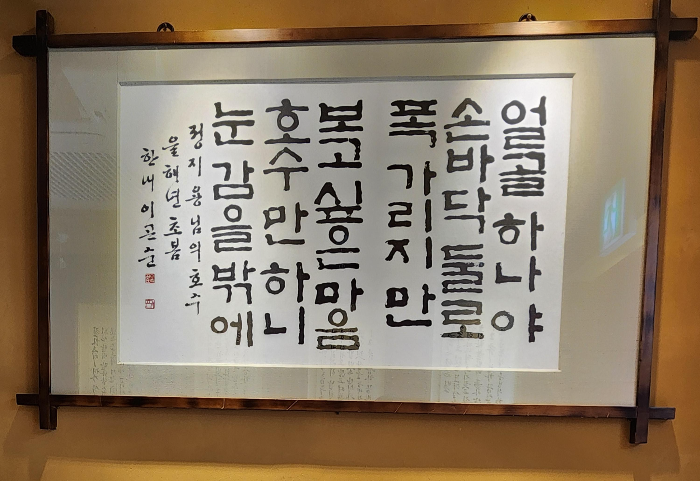 얼골 하나야
손바닥 둘로
폭 가리지만
보고 싶은 마음
호수만 하니
눈 감을 밖에
정지용님의 호수
을해년 초봄
한내 이곤순